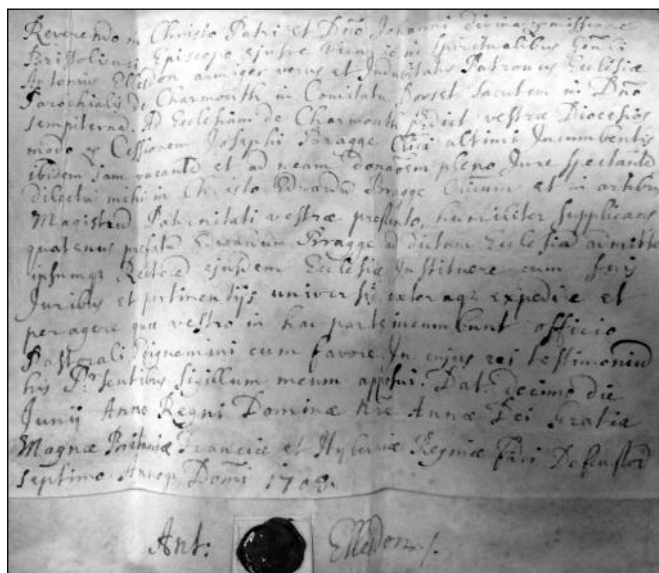 Reverendo in Christo Patri et Dño Johanni divina permissione
Bristoliensi Episcopo ejusve Vicario in Spiritualibus Genli
Antonius Ellesdon armiger verus et Indubitatus Patronus Ecclesiæ
Parochialis de Charmouth in Comitatu Dorset Salutem in Dño
sempiternā. Ad Ecclesiam de Charmouth prdict vestræ Diocesios
modo p Cessionem Josephi Bragge Clici ultimi Incumbentis
ibidem jam vacantē et ad meam donacōem pleno Jure spectantē
dilectū mihi in Christo Edvardū Bragge Clicum et in artibus
Magistrū Paternitati vestræ præsento, humiliter supplicans
quatenus prefatū Edvardum Bragge ad dictam Ecclesiā admittere
ipsumqz Rectorē ejusdem Ecclesiæ Instituere cum suis
Juribus et pertinentijs universis, cæteraqz expedire et
peragere quæ vestro in hac parte incumbunt officio
Pastorali Dignemini cum favore. In cujus rei testimoniū
his Prsentibus Sigillum meum apposui. Dat. decimo die
Junii Anno Regni Dominæ nræ Annæ Dei Gratiæ
Magnæ Britaniæ Franciæ et Hyberniæ Reginæ Fidei Defensor
septimo Annoqz Domi 1708.
Ant: Ellesdon